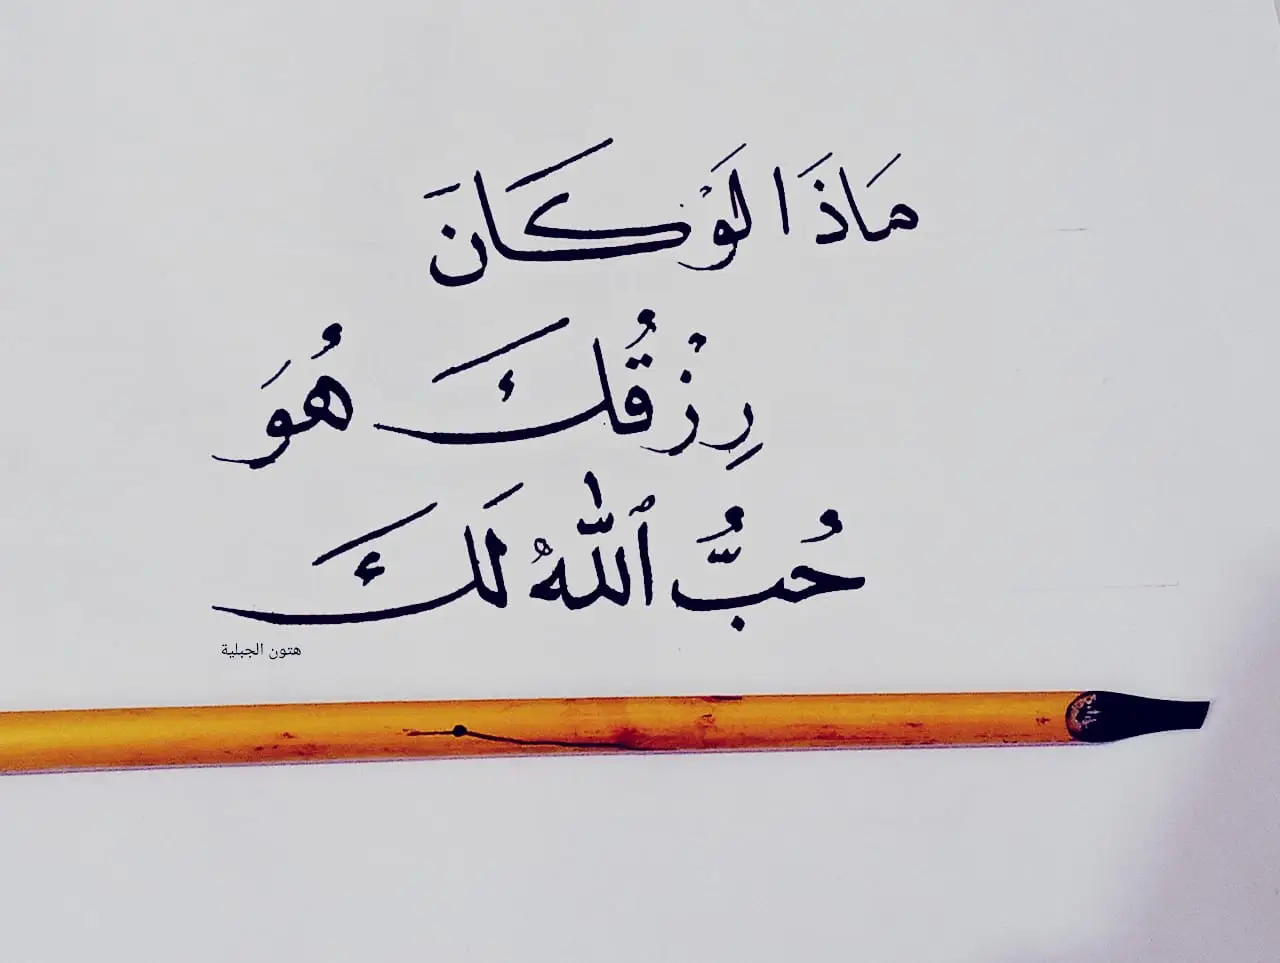 مَاذَا لَوْ كَانَ
رِزْقُكَ هُوَ
حُبُّ ٱللّٰهُ لَكَ
هتون الجبلية